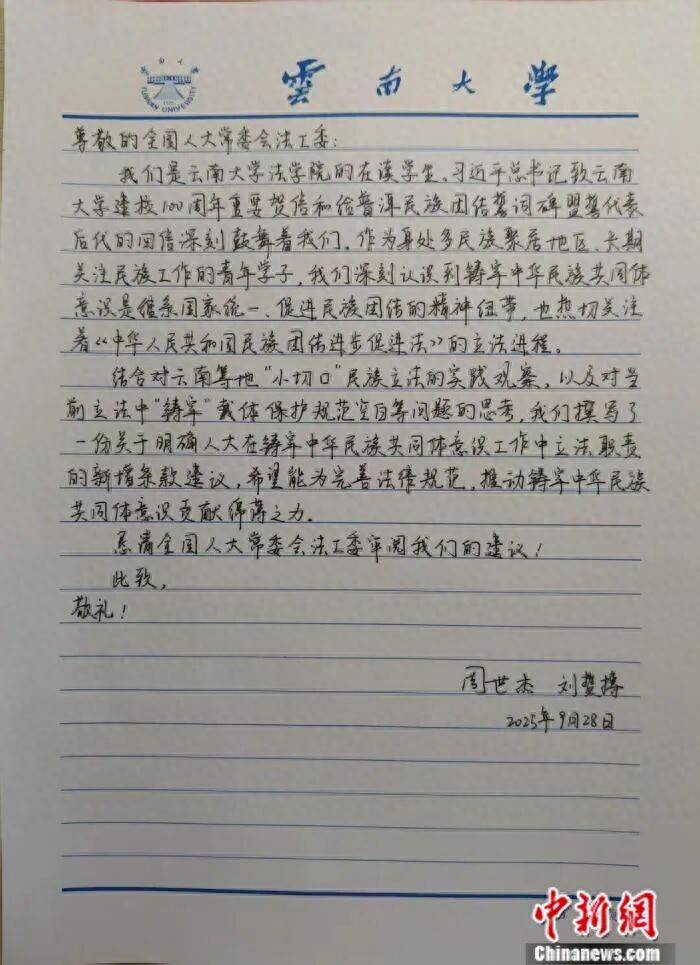 雲南大學
YUNNAN UNIVERSITY
尊敬的全国人大常委会法工委:
我们是云南大学法学院的在读学生,习近平总书记致云南
大学建校100周年重要贺信和给普洱民族团结誓词碑盟誓代表
后代的回信深刻鼓舞着我们,作为身处多民族聚居地区、长期
关注民族工作的青年学子,我们深刻认识到铸牢中华民族共同体
意识是维系国家统一、促进民族团结的精神纽带,也热切关注
着《中华人民共和国民族团结进步促进法》的立法进程。
结合对云南等地“小切口”民族立法的实践观察,以及对当
前立法中“铸牢”载体保护规范空白等问题的思考,我们撰写了
一份关于明确人大在铸牢中华民族共同体意识工作中立法职责
的新增条款建议,希望能为完善法律规范,推动铸牢中华民族
共同体意识贡献绵薄之力。
恳请全国人大常委会法工委审阅我们的建议!
此致,
敬礼!
周世杰 刘楚
2025年9月28日
中新網
Chinanews.com